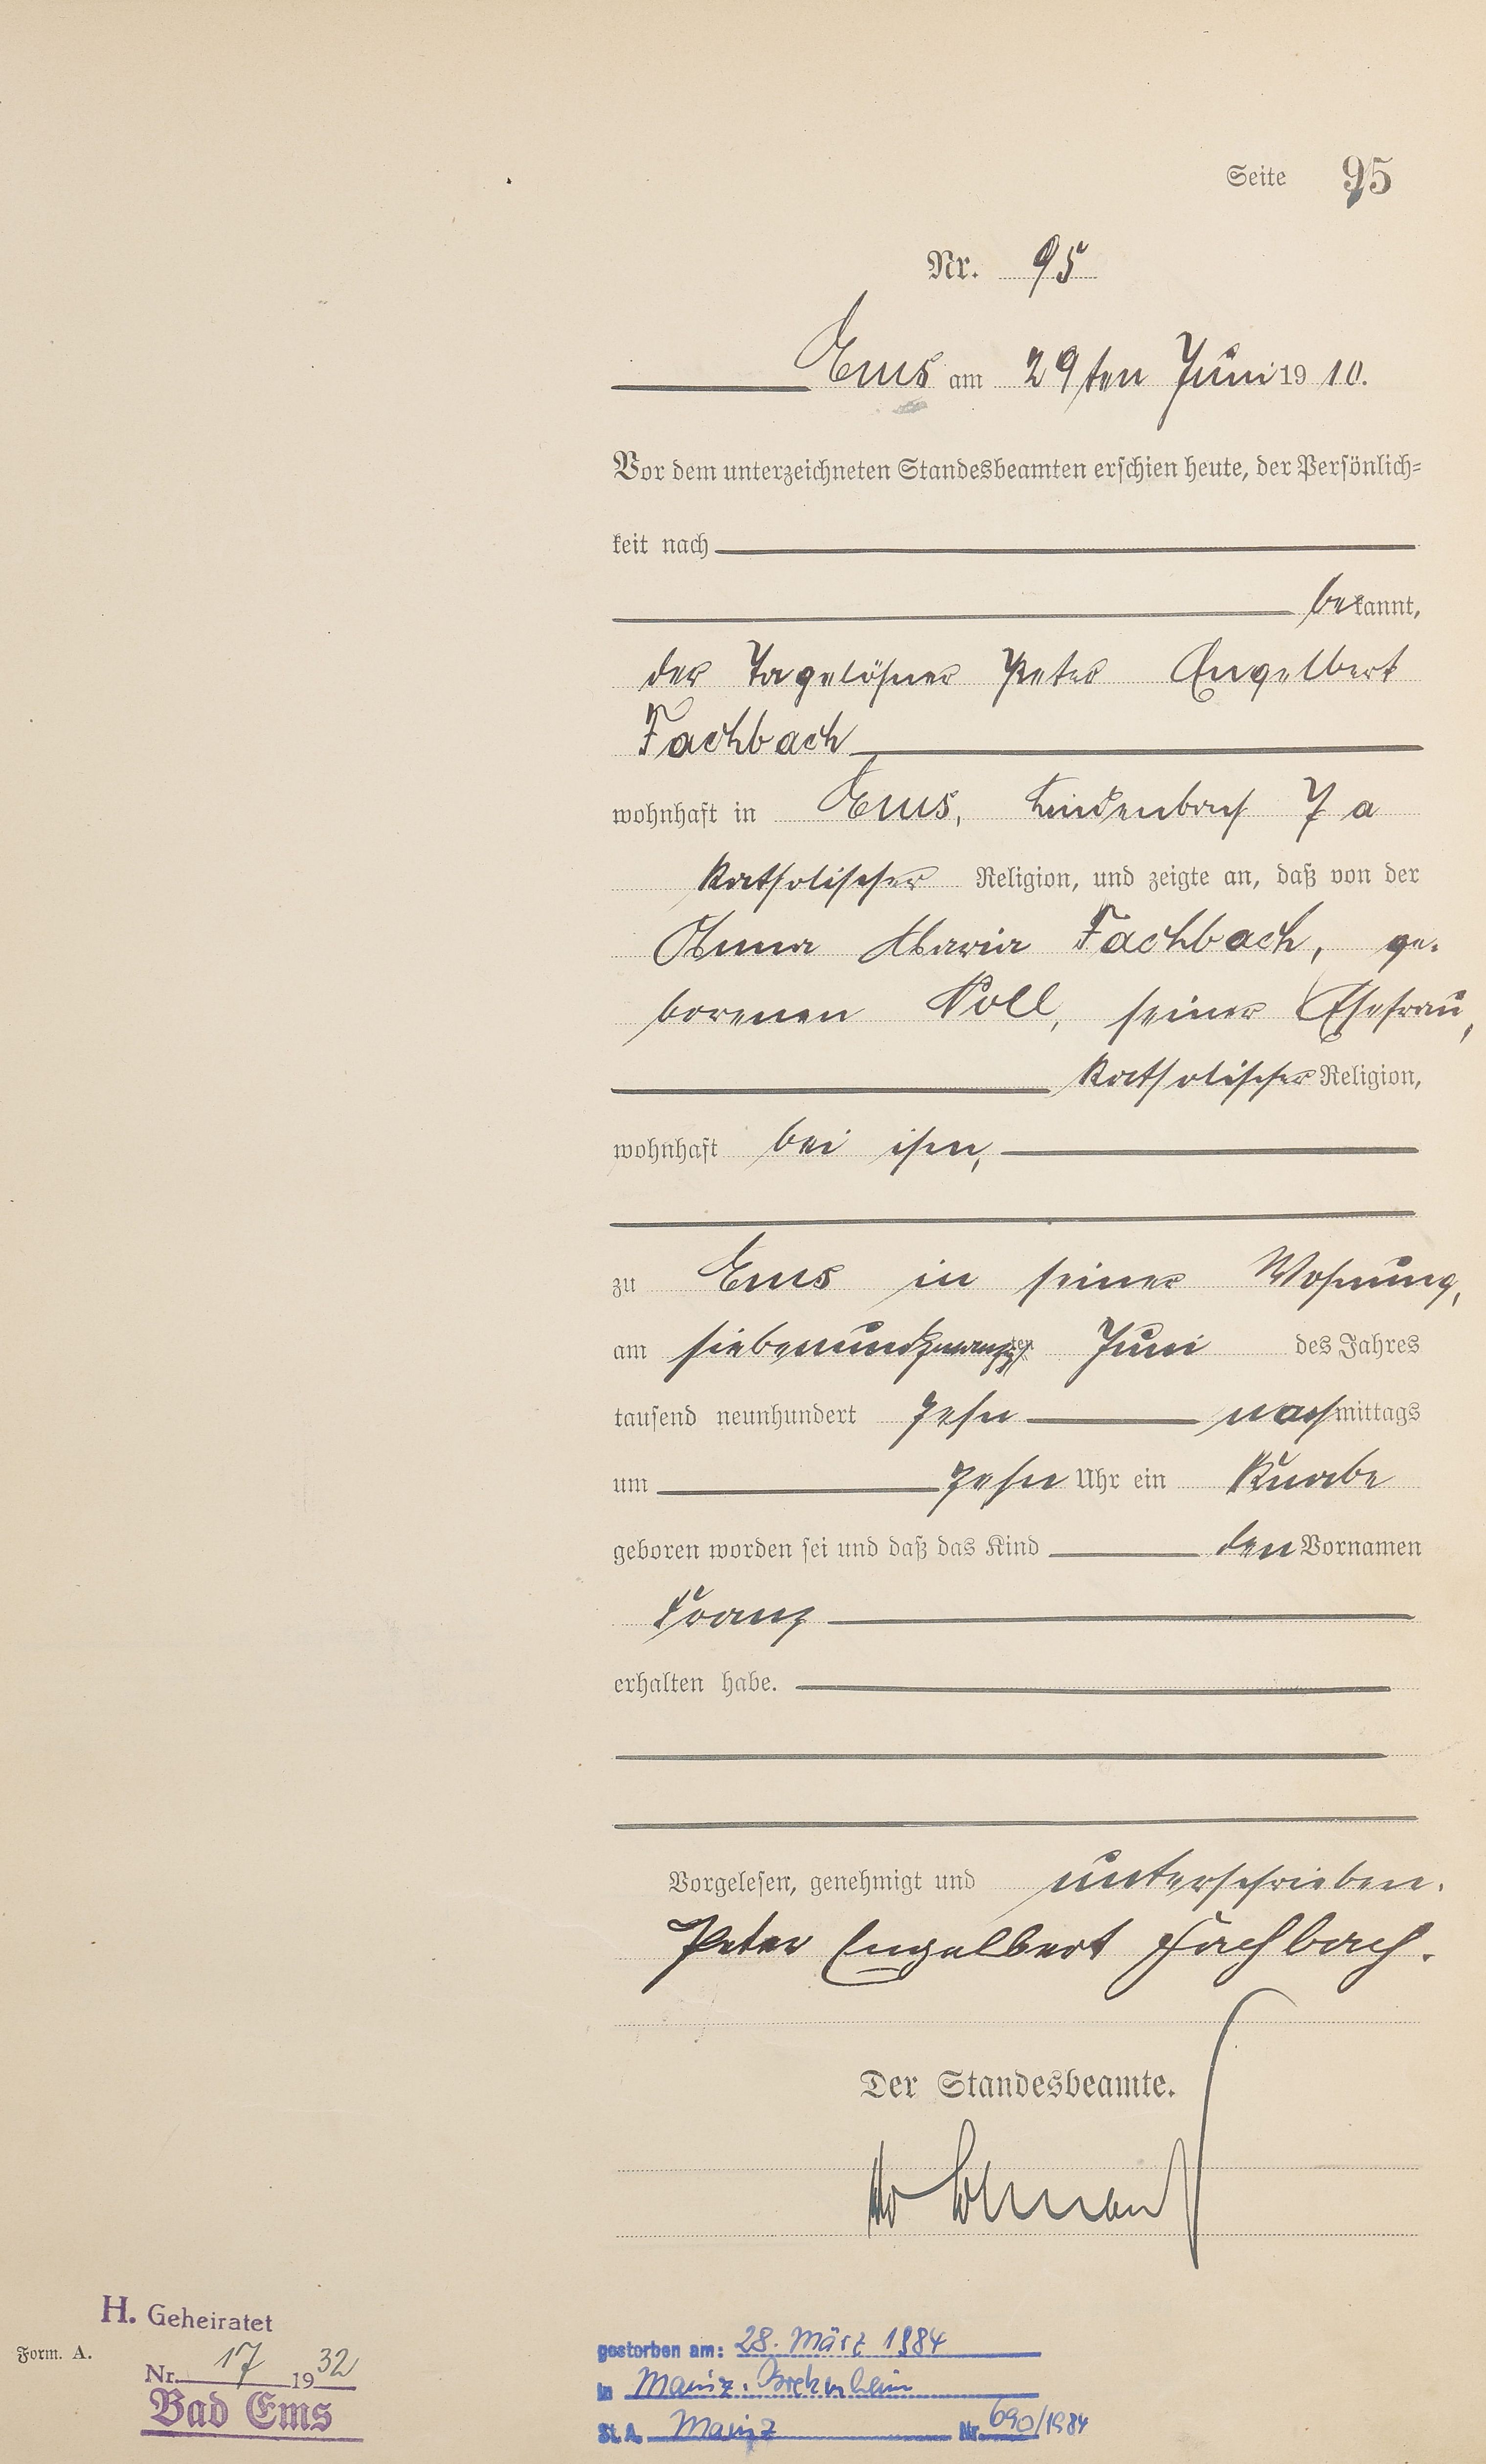 Seite 95
Nr. 95
Ems am 29ten Juni 1910.
Vor dem unterzeichneten Standesbeamten erschien heute, der Persönlich-
keit nach
bekannt,
der Tagelöhner Peter Engelbert
Fachbach
wohnhaft in Ems, Lindenbach 7 a
katholischer Religion, und zeigte an, daß von der
Anna Maria Fachbach, ge-
borenen Noll, seiner Ehefrau,
katholischer Religion,
wohnhaft bei ihm,
zu Ems in seiner Wohnung,
am siebenundzwanzigsten Juni des Jahres
tausend neunhundert zehn nachmittags
um zehn Uhr ein Knabe
geboren worden sei und daß das Kind den Vornamen
Franz
erhalten habe.
Vorgelesen, genehmigt und unterschrieben.
Peter Engelbert Fachbach.
Der Standesbeamte.
H. Geheiratet
Form. A.
Nr. 17 1932
Bad Ems
gestorben am: 28. März 1984
in Mainz-Bretzenheim
St. A. Mainz Nr. 690/1984